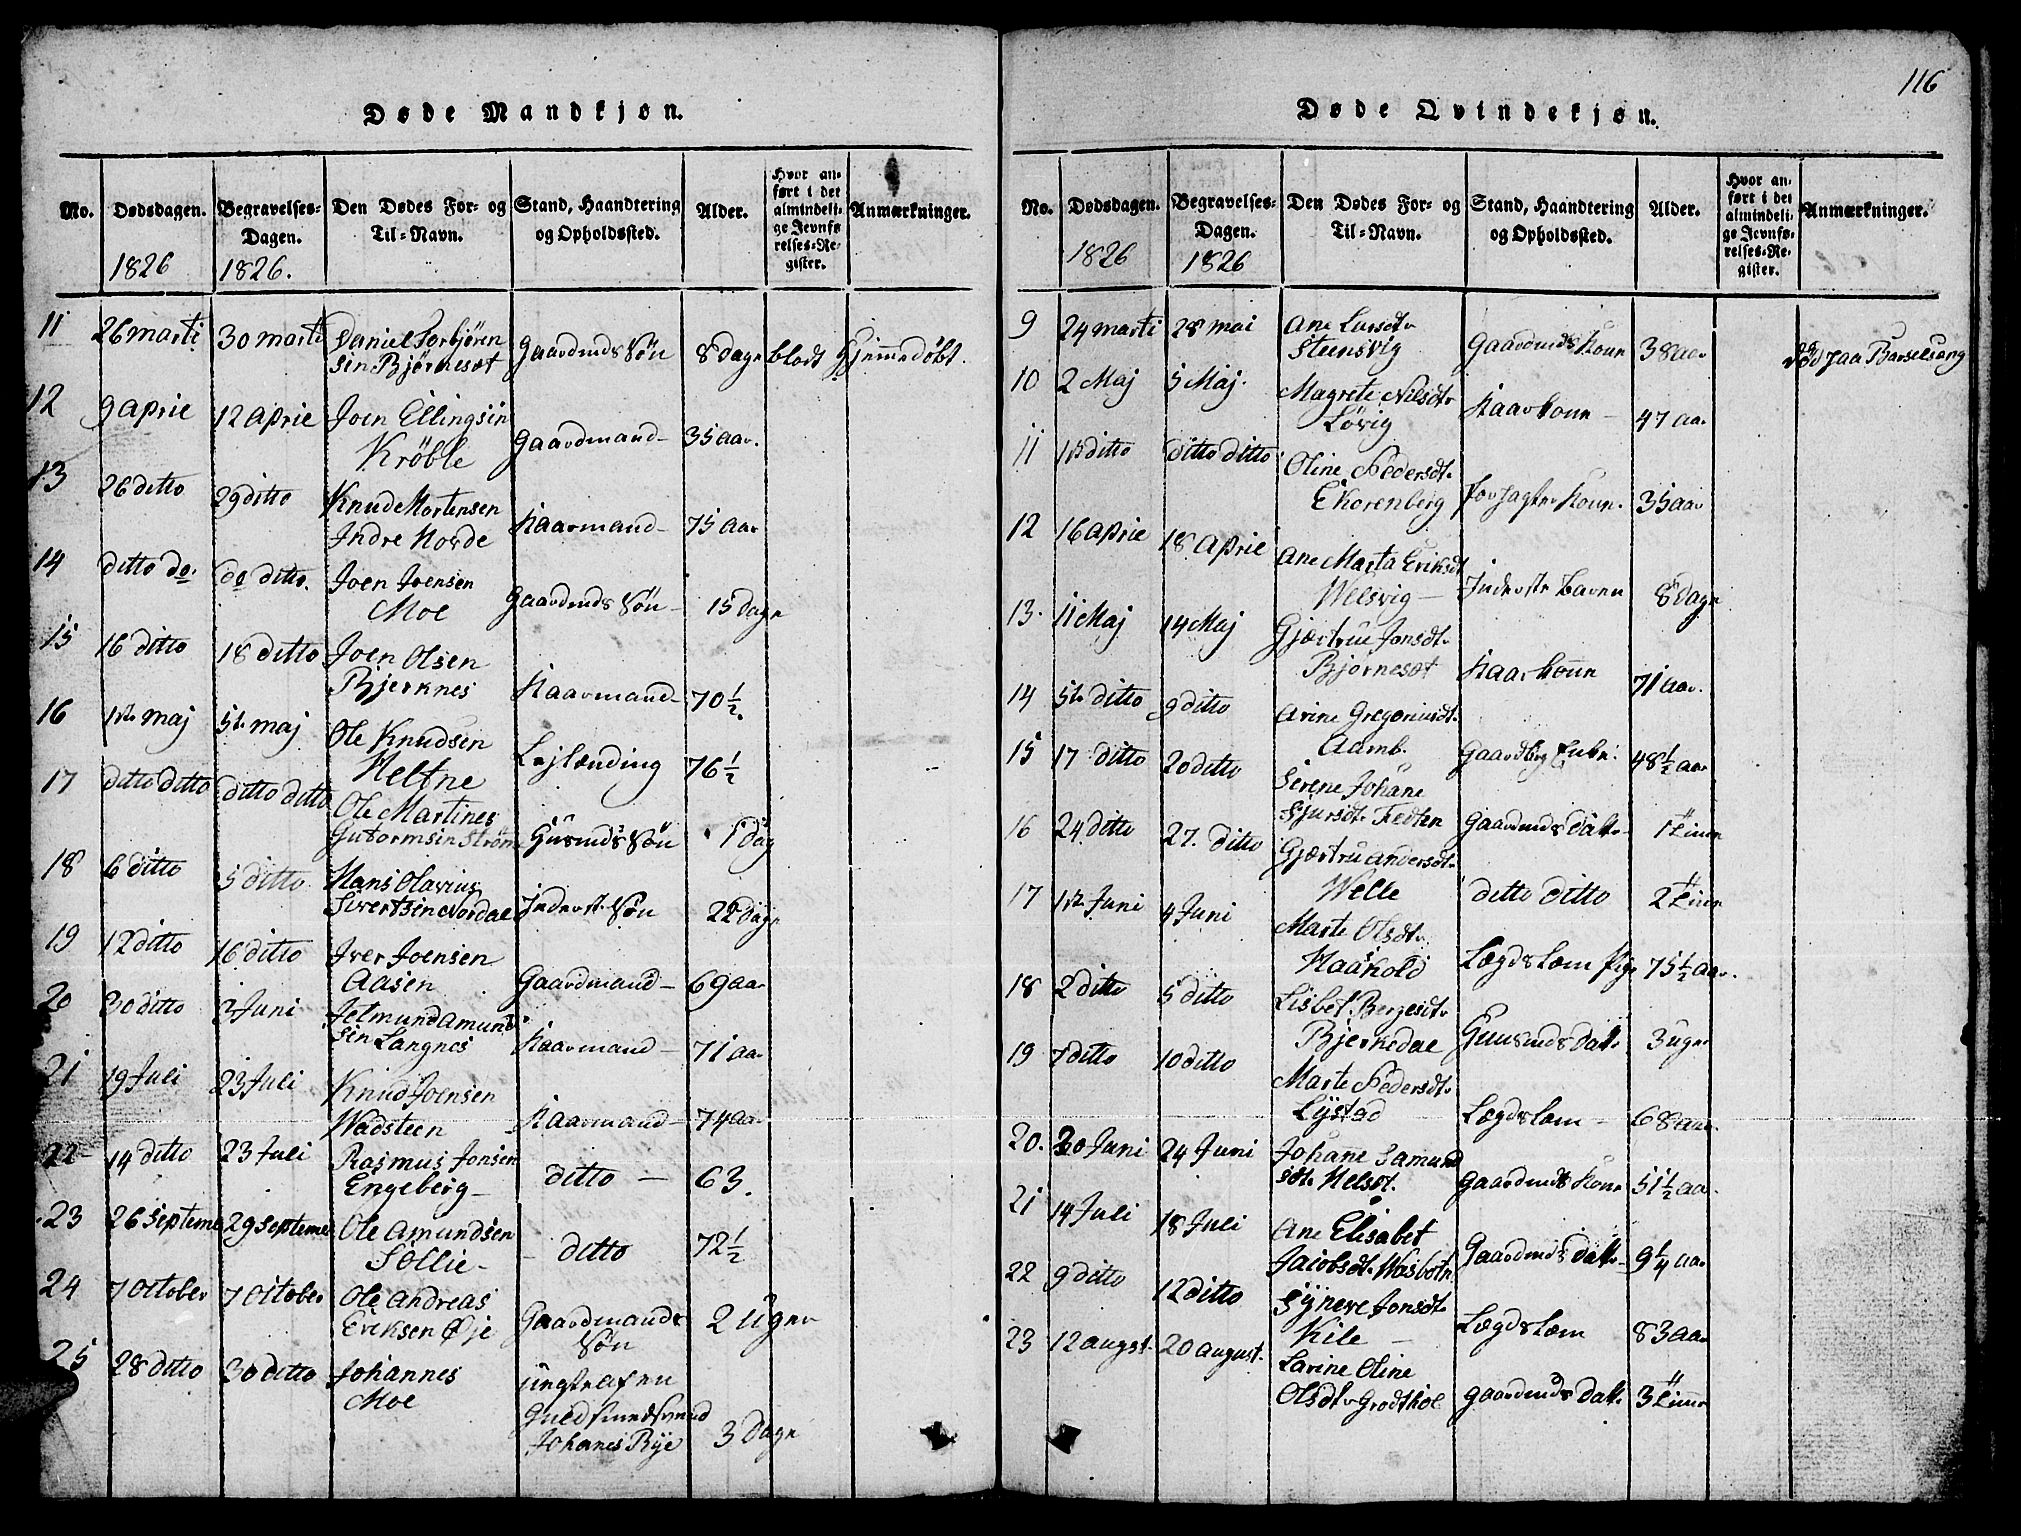 116
Døde Mandkjøn.
No.
Dødsdagen.
1826
Begravelses-
Dagen.
1826.
Den Dødes For- og
Til-Navn.
Stand, Haandtering
og Opholdssted.
Alder.
Hvor an-
ført i det
almindeli-
ge Jevnfø-
relses-Re-
gister.
Anmærkninger.
11 26 marti 30 marti Daniel Torbjøren
sin Bjørnesæt Gaardmds Søn 8 dage blodt Hjemmedøbt.
12 9 Aprie 12 Aprie Joen Ellingsin
Krøble Gaardmand 35 aar.
13 26 ditto 29 ditto Knud Mortensen
Indre Hovde Kaarmand 75 aar
14 ditto do. do ditto. Joen Joensen
Moe Gaardmds Søn 15 Dage
15 16 ditto 18 ditto Joen Olsen
Bjerknes Kaarmand 70 1/2.
16 1ste maj 5te maj Ole Knudsen
Heltne Lejlænding 76 1/2
17 ditto ditto ditto ditto Ole Martines
Gutormsin Strøm Husmds Søn 1 Dag
18 6 ditto 5 ditto Hans Olavius
Sivertsin Nordae Inderst. Søn 22 Dage
19 12 ditto 16 ditto Iver Joensen
Aasen Gaardmand 69 aar
20 30 ditto 3 Juni Jetmund Amund
sin Langnes Kaarmand 71 aar
21 19 Juli 23 Juli Knud Joensen
Wadsteen Kaarmand 74 aar
22 14 ditto 23 Juli Rasmus Jonsen
Engeberg ditto 63.
23 26 Septeme 29 Septeme Ole Amundsen
Søllie ditto 72 1/2
24 7 October 7 October Ole Andreas
Eriksen Øje Gaardmands
Søn 2 Uger
25 28 ditto 30 ditto Johannes
Moe
Johanes Rye 3 Dage
Døde Qvindekjøn.
No.
Dødsdagen.
1826
Begravelses-
Dagen.
1826
Den Dødes For- og
Til-Navn.
Stand, Haandtering
og Opholdssted.
Alder.
Hvor an-
ført i det
almindeli-
ge Jevnfø-
relses-Re-
gister.
Anmærkninger.
9 24 marti 28 mai Ane Larsdtr
Steensvig Gaardmds Kone 38 aar død paa Barselseng
10 2 Maj 5 Maj. Magrete Nilsdtr
Løvig Kaarkone 47 aar
11 1ste ditto ditto ditto Oline Pedersdtr
Ekorenberg Kone. 35 aar
12 16 Aprie 18 Aprie Ane Marta Eriksdt
Welsvig Inderste Barn 8 dage
13. 11 Maj 14 Maj Gjærtrue Jonsdtr
Bjørnesæt Kaarkone 71 aar.
14 5te ditto 9 ditto Arine Gregoriusdtr
Aamb. Enke 48 1/2 aar
15 17 ditto 20 ditto Serene Johane
Sjursdtr Tedten Gaardmds Datter 1 Time
16 24 ditto 27. ditto Gjærtru Andersdtr
Welle ditto ditto 2 Timer
17 1ste Juni 4 Juni Marte Olsdtr
Haaskold Lægdslæm Pige 75 1/2 aar.
18 2 ditto 5 ditto Lisbet Bergesdtr
Bjerkedae Huusmds Datter 3 uger
19 7 ditto 10 ditto Marte Pedersdtr
Lystad Lægdslæm 68 aar.
20. 20 Juni 24 Juni Johane Samund
sdtr Helset. Gaardmds Kone 51 1/2 aar.
21 14 Juli 18 Juli Ane Elisabet
Jacobsdtr Wasbotn Gaardmds Datter 9 1/4 aar
22 9 ditto 12 ditto Syneve Jonsdtr
Kile Lægdslæm 83 aar
23 12 augst. 20 august. Larine Oline
Olsdtr Grodthol Gaardmds Datter 3 Timer